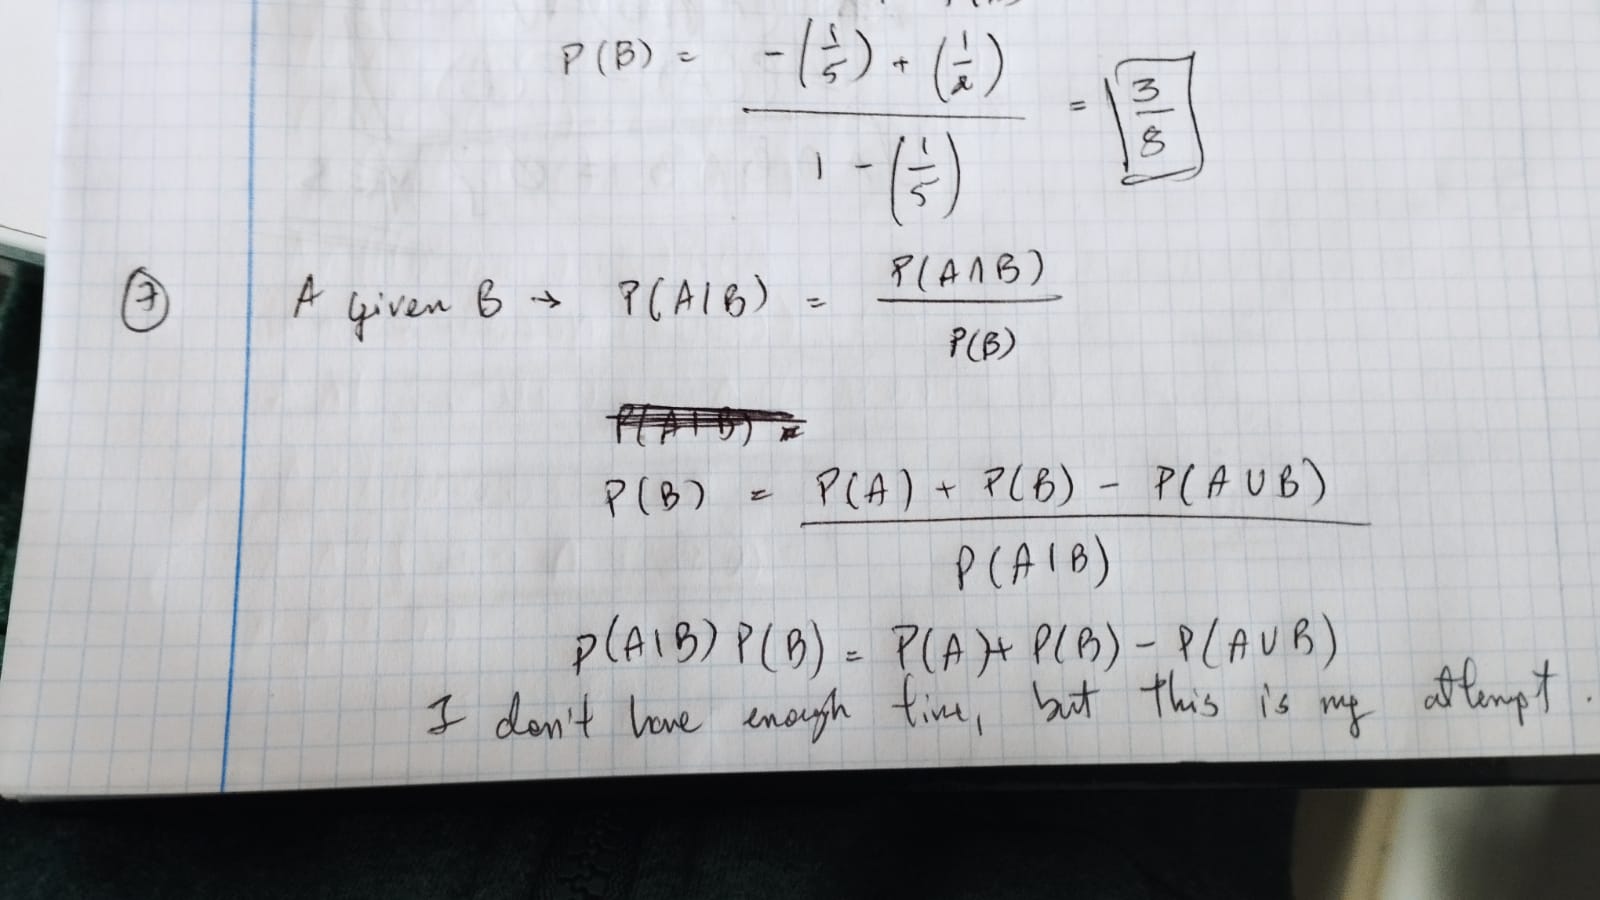 P(B) = (-(1/5) + (1/2)) / (1 - (1/5)) = 3/8
7 A given B → P(A|B) = P(A∩B) / P(B)
P(B) = (P(A) + P(B) - P(A∪B)) / P(A|B)
P(A|B) P(B) = P(A) + P(B) - P(A∪B)
I don't have enough time, but this is my attempt.